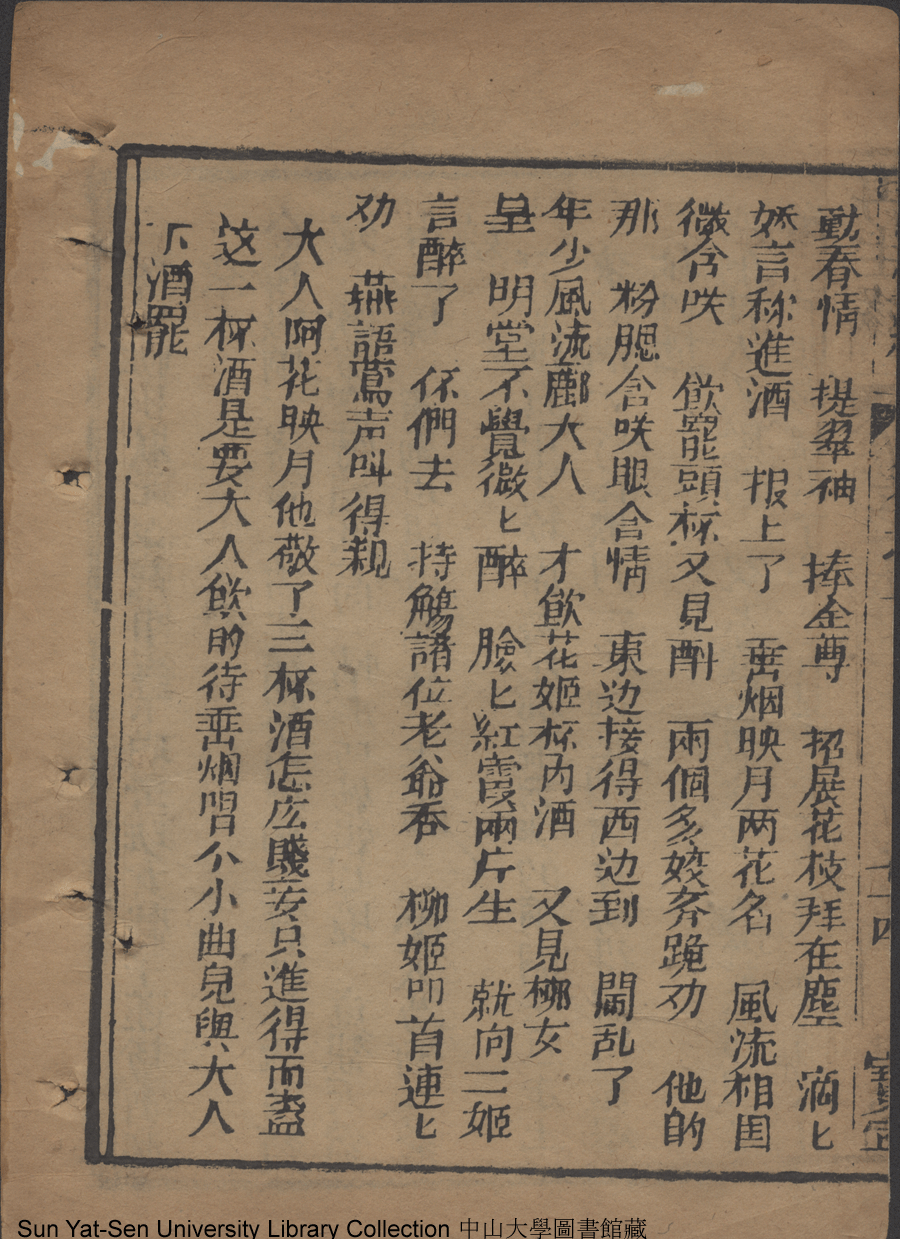 動春情　提翠袖　捧金尊　招展花枝拜在塵　滴匕
嬌言称進酒　报上了　垂烟映月两花名　風流相国
微含咲　飲罷頭杯又見酙　兩個多姣奔跪劝　他的
那　粉腮含咲眼含情　東边接得西边到　鬧乱了
年少風流酈大人　才飲花姬杯内酒　又見柳女
呈　明堂不覺微匕醉　臉匕紅霞兩片生　就向二姬
言醉了　伱們去　持觴諸位老爺吞　柳姬叩首連匕
劝　燕語鶯声叫得親
大人阿花映月他敬了三杯酒怎広賤妾只進得而盏
这一杯酒是要大人飲的待垂烟唱个小曲兒與大人
下酒罷
十四
Sun Yat-Sen University Library Collection 中山大學圖書館藏